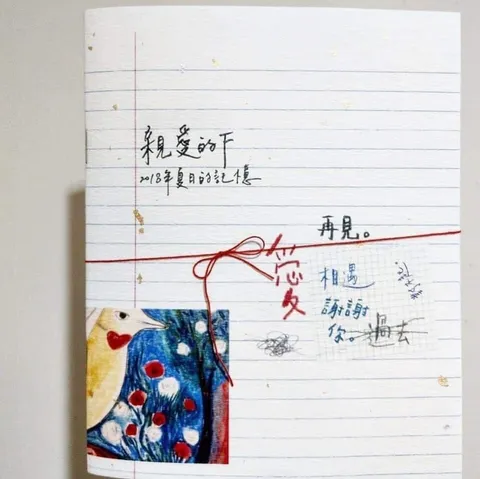 親愛的F
2018年夏日的記憶
再見。
愛
相遇
謝謝
你。過去